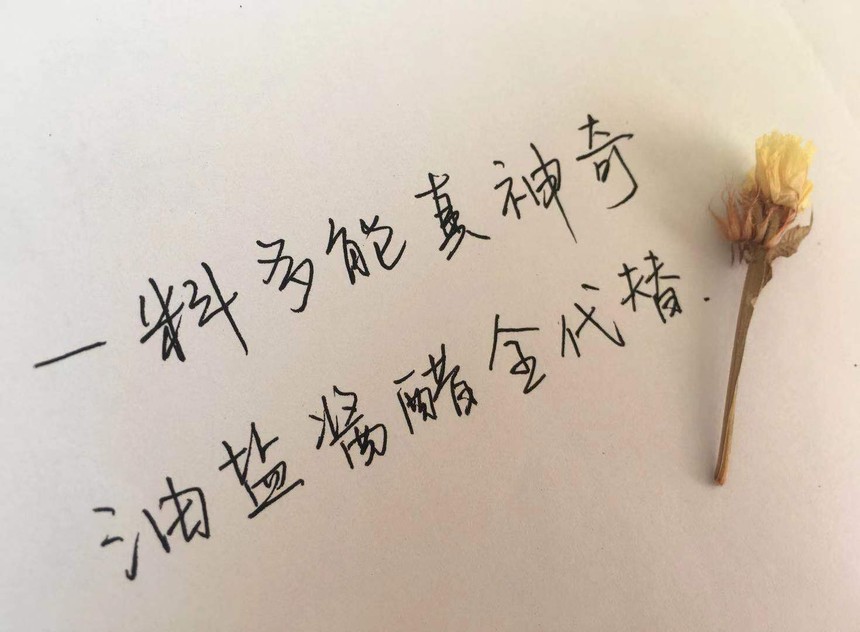 一料多能真神奇
油盐酱醋全代替.